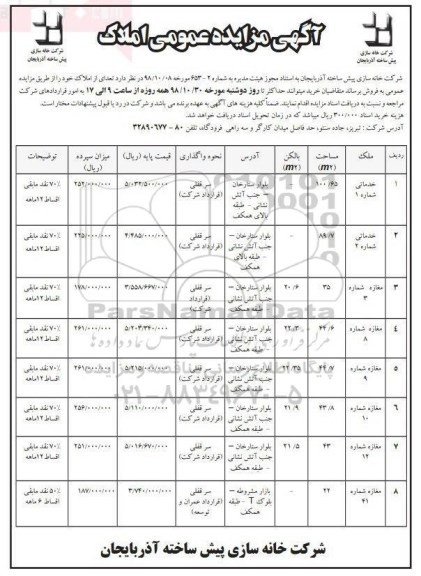 شرکت خانه سازی
پیش ساخته آذربایجان
آگهی مزایده عمومی املاک
شرکت خانه سازی
پیش ساخته آذربایجان
شرکت خانه سازی پیش ساخته آذربایجان به استناد مجوز هیئت مدیره به شماره ۲ – ۶۵۳ مورخه ۹۸/۱۰/۰۸ در نظر دارد تعدادی از املاک خود را از طریق مزایده
عمومی به فروش برساند متقاضیان خرید میتوانند حداکثر تا روز دوشنبه مورخه ۹۸/۱۰/۳۰ همه روزه از ساعت ۹ الی ۱۷ به امور قراردادهای شرکت
مراجعه و نسبت به دریافت اسناد مزایده اقدام نمایند. ضمناً کلیه هزینه های آگهی به عهده برنده می باشد و شرکت در رد یا قبول پیشنهادات مختار است.
هزینه خرید اسناد ۳۰۰/۰۰۰ ریال میباشد که در زمان تحویل اسناد دریافت خواهد شد.
آدرس شرکت : تبریز، جاده سنتو، حد فاصل میدان کارگر و سه راهی فرودگاه تلفن ۸۰ – ۳۲۸۹۰۶۷۷
ردیف ملک مساحت (m۲) بالکن (m۲) آدرس نحوه واگذاری قیمت پایه (ریال) میزان سپرده (ریال) توضیحات
۱ خدماتی شماره ۱ ۱۰۰/۶۵ - بلوار ستارخان – جنب آتش نشانی – طبقه بالای همکف سر قفلی (قرارداد شرکت) ۵/۰۳۲/۵۰۰/۰۰۰ ۲۵۲/۰۰۰/۰۰۰ ۷۰٪ نقد مابقی اقساط ۱۲ماهه
۲ خدماتی شماره ۲ ۸۹/۷ - بلوار ستارخان – جنب آتش نشانی – طبقه بالای همکف سر قفلی (قرارداد شرکت) ۴/۴۸۵/۰۰۰/۰۰۰ ۲۲۵/۰۰۰/۰۰۰ ۷۰٪ نقد مابقی اقساط ۱۲ماهه
۳ مغازه شماره ۳ ۳۵ ۲۰/۶ بلوار ستارخان – جنب آتش نشانی – طبقه همکف سر قفلی (قرارداد شرکت) ۳/۵۵۸/۶۶۷/۰۰۰ ۱۷۸/۰۰۰/۰۰۰ ۷۰٪ نقد مابقی اقساط ۱۲ماهه
۴ مغازه شماره ۸ ۴۴/۶ ۲۲/۳ بلوار ستارخان – جنب آتش نشانی – طبقه همکف سر قفلی (قرارداد شرکت) ۵/۲۰۳/۳۴۰/۰۰۰ ۲۶۱/۰۰۰/۰۰۰ ۷۰٪ نقد مابقی اقساط ۱۲ماهه
۵ مغازه شماره ۹ ۴۴/۷ ۲۲/۳۵ بلوار ستارخان – جنب آتش نشانی – طبقه همکف سر قفلی (قرارداد شرکت) ۲۶۱/۰۰۰/۰۰۰ ۷۰٪ نقد مابقی اقساط ۱۲ماهه
۶ مغازه شماره ۱۰ ۴۳/۸ ۲۱/۹ بلوار ستارخان – جنب آتش نشانی – طبقه همکف سر قفلی (قرارداد شرکت) ۵/۱۱۰/۰۰۰/۰۰۰ ۲۵۶/۰۰۰/۰۰۰ ۷۰٪ نقد مابقی اقساط ۱۲ماهه
۷ مغازه شماره ۱۲ ۴۳ ۲۱/۵ بلوار ستارخان – جنب آتش نشانی – طبقه همکف سر قفلی (قرارداد شرکت) ۵/۰۱۶/۶۷۰/۰۰۰ ۲۵۱/۰۰۰/۰۰۰ ۷۰٪ نقد مابقی اقساط ۱۲ماهه
۸ مغازه شماره ۴۱ ۲۲ - بازار مشروطه – بلوک T – طبقه همکف سر قفلی (قرارداد عمران و توسعه) ۳/۷۴۰/۰۰۰/۰۰۰ ۱۸۷/۰۰۰/۰۰۰ ۵۰٪ نقد مابقی اقساط ۶ ماهه
ParsNamadData
۰۲۱-۸۸۳۴۹۶۷۰-۵
شرکت خانه سازی پیش ساخته آذربایجان